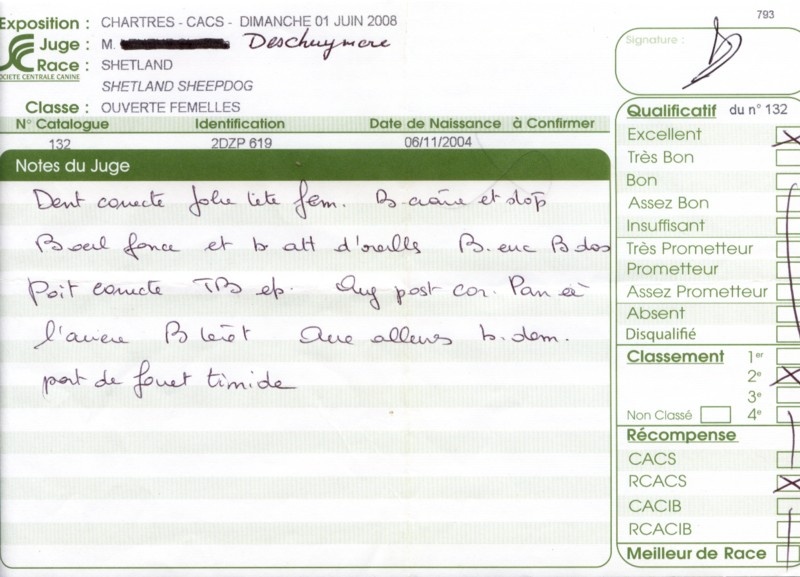 793
Exposition : CHARTRES - CACS - DIMANCHE 01 JUIN 2008
Juge : M. Deschuymere
Race : SHETLAND
SOCIETE CENTRALE CANINE
SHETLAND SHEEPDOG
Classe : OUVERTE FEMELLES
N° Catalogue Identification Date de Naissance à Confirmer
132 2DZP 619 06/11/2004
Notes du Juge
Dent correcte jolie tete fem. B. crâne et stop
B oeil fonce et b att d'oreills B. enc B dos
Poit correcte TB ep. Ang post cor.
l'arriere B Aux allures b. dem.
port de fouet timide
Signature :
Qualificatif du n° 132
Excellent
Très Bon
Bon
Assez Bon
Insuffisant
Très Prometteur
Prometteur
Assez Prometteur
Absent
Disqualifié
Classement 1er
2e
3e
Non Classé 4e
Récompense
CACS
RCACS
CACIB
RCACIB
Meilleur de Race